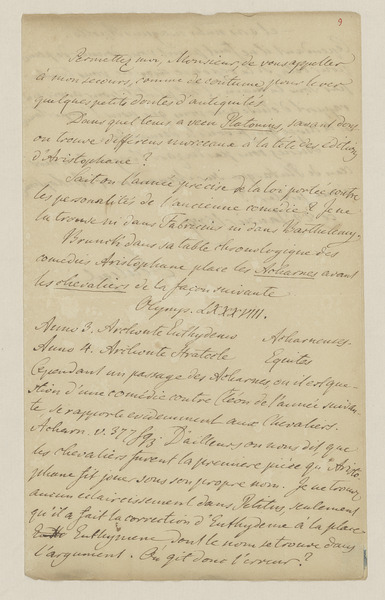 9
Permettez moi, Monsieur, de vous appeller
à mon secours, comme de coutume, pour lever
quelques petits doutes d'antiquités
Dans quel tems a vecu Platonius, savant dont
on trouve différens morceaux à la tête des éditions
d'Aristophane?
Sait on l'année précise de la loi portée contre
les personalités de l'ancienne comédie? Je ne
la trouve ni dans Fabricius ni dans Barthelemy.
Brunck dans sa table chronologique des
comédies Aristophane place les Acharnes avant
les chevaliers de la façon suivante
Olymp. LXXXVIII.
Anno 3. Archonte Euthydemo Acharnenses.
Anno 4. Archonte Stratocle Equites
Cependant un passage des Acharnes où il est que-
stion d'une comédie contre Cléon de l'année
se rapporte evidemment aux Chevaliers.
Acharn. v. 377 D'ailleurs on nous dit que
les chevaliers furent la premiere piése qu'Aristo-
phane fit jouer sous son propre nom. Je ne trouve
aucun eclaircissement dans Petatus, seulement
qu'il a fait la correction d'Euthydeme à la place
Euthymene dont le nom se trouve dans
l'argument. Où gît donc l'erreur?